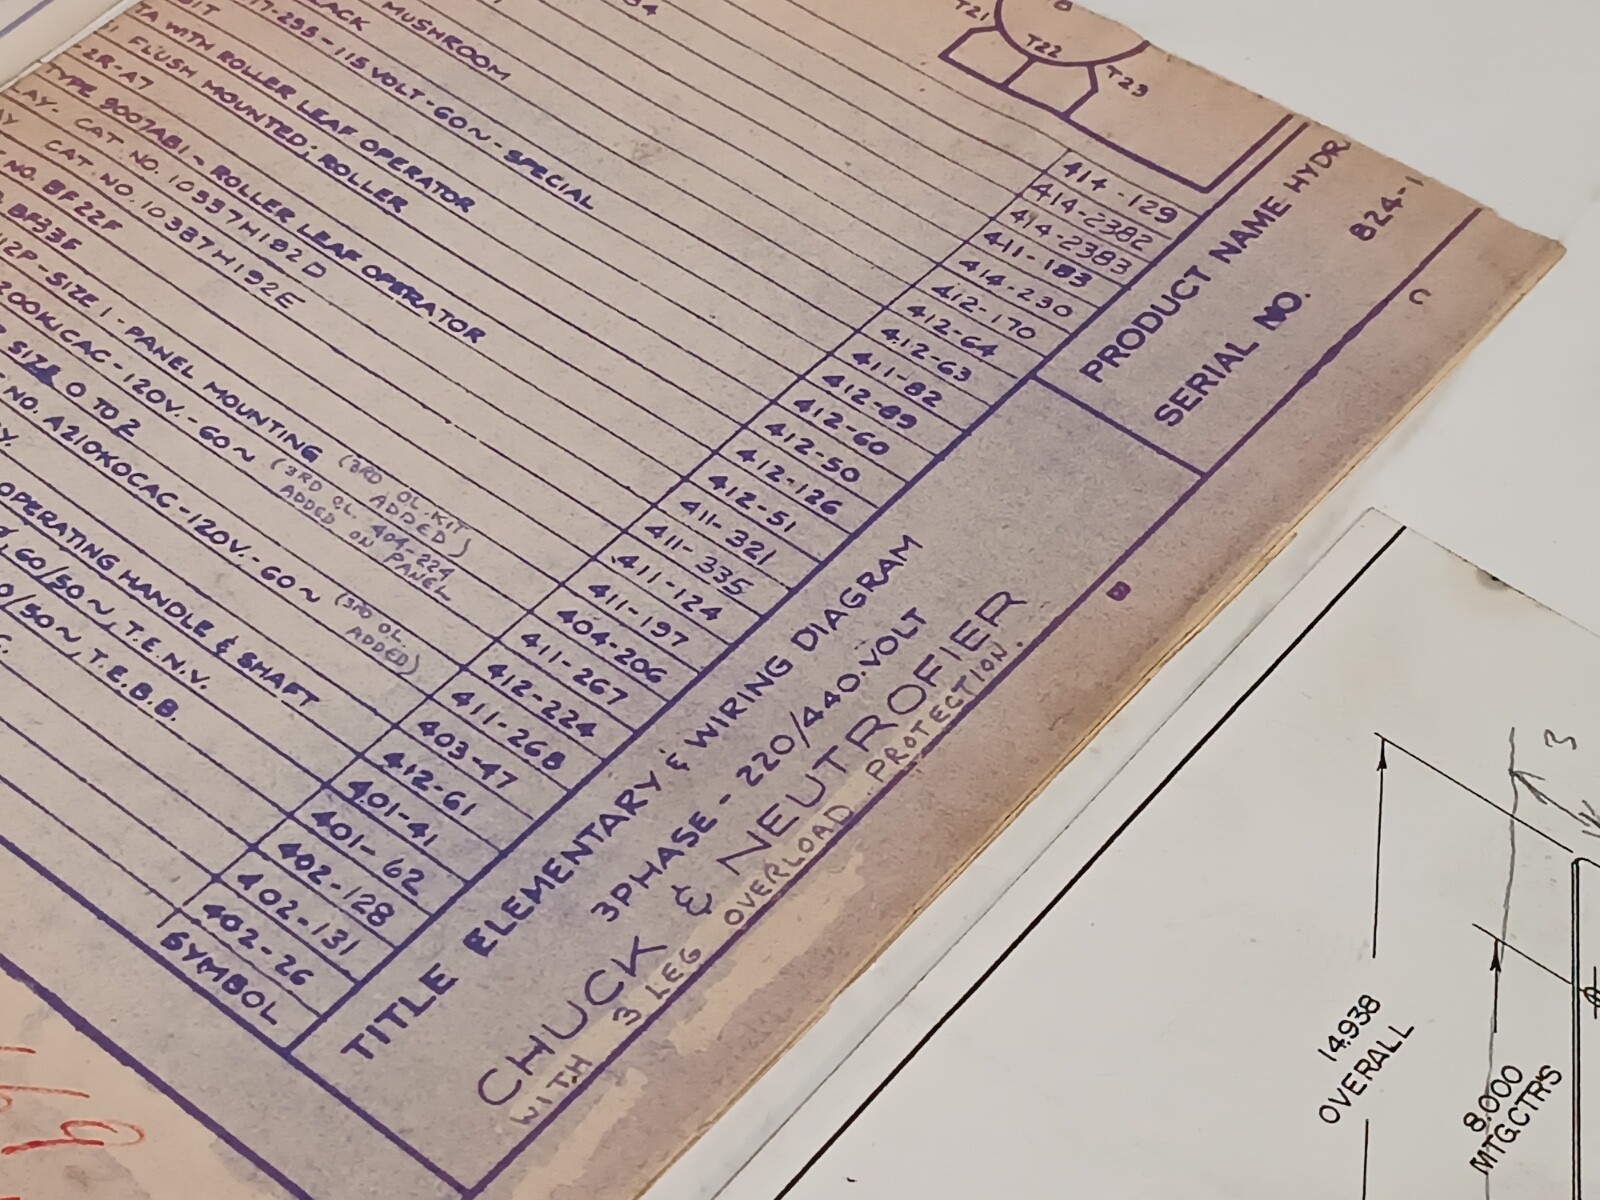 T21
T22
T23
MUSHROOM
117-233-115 VOLT-60~-SPECIAL
WITH ROLLER LEAF OPERATOR
FLUSH MOUNTED; ROLLER
2R-A7
TYPE 9007AB1-ROLLER LEAF OPERATOR
CAT NO. 10337H192D
CAT.NO.10387H192E
NO. BF22F
BF33F
12P-SIZE 1-PANEL MOUNTING (3RD OL.KIT
ADDED)
200K1CAC-120V.-60~ (3RD OL. 404-224
ADDED ON PANEL
SIZE 0 TO 2
NO. A210K0CAC-120V.-60~ (3RD OL
ADDED)
OPERATING HANDLE & SHAFT
60/50~, T.E.N.V.
0/50~, T.E.B.B.
414-129
414-2382
414-2383
411-183
414-230
412-170
412-64
412-63
411-82
412-89
412-60
412-50
412-126
412-51
411-321
411-335
411-124
411-197
404-206
411-267
412-224
411-268
403-47
412-61
401-41
401-62
402-128
402-131
402-26
SYMBOL
TITLE ELEMENTARY & WIRING DIAGRAM
3PHASE - 220/440.VOLT
CHUCK & NEUTROFIER
WITH 3 LEG OVERLOAD PROTECTION.
PRODUCT NAME-HYDR
SERIAL NO. 824-1
14.938
OVERALL
8.000
MTG.CTR'S
3